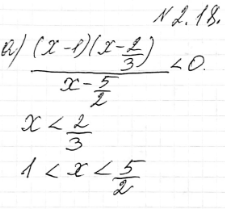 №2.18.
а) ((x-1)(x-2/3))/(x-5/2) < 0.
x < 2/3
1 < x < 5/2